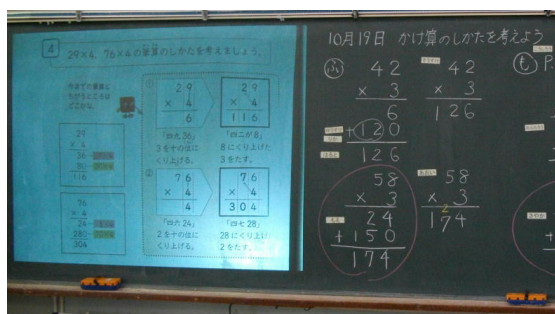 4 29×4, 76×4の筆算のしかたを考えましょう。
今までの筆算と
ちがうところは
どこかな。
29
× 4
36
80
116
76
× 4
24
280
304
①
29
× 4
6
「四九36」
3を十の位に
くり上げる。
29
× 4
116
「四二が8」
8にくり上げた
3をたす。
②
76
× 4
4
「四六24」
2を十の位に
くり上げる。
76
× 4
304
「四七28」
28にくり上げた
2をたす。
10月19日 かけ算のしかたを考えよう
ふ
42
× 3
6
+120
126
42
× 3
126
58
× 3
24
+150
174
58
× 3
2
174
も